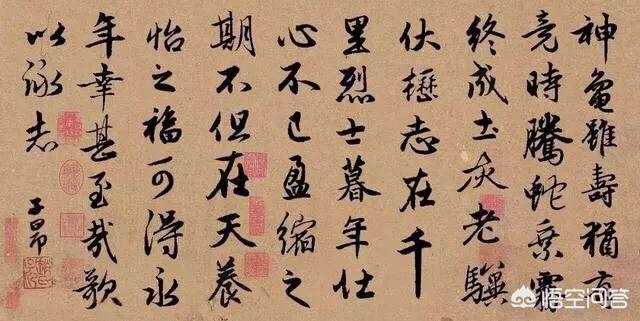 神龜雖壽猶有
竟時騰蛇乘霧
終成土灰老驥
伏櫪志在千
里烈士暮年壮
心不已盈縮之
期不但在天養
怡之福可得永
年幸甚至哉歌
以詠志
子昂
悟空问答